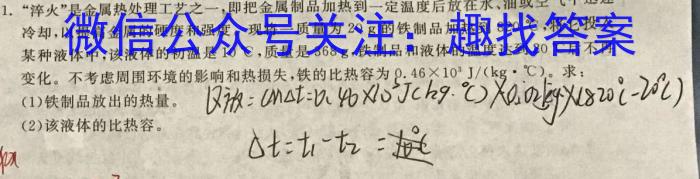 1. "淬火"是金属热处理工艺之一,即把金属制品加热到一定温度后放在水、油或空气中迅速
冷却,以提高金属的硬度和强度。现将一质量为20 g的铁制品加热到
微信公众号关注:趣找答案
某种液体中,该液体的初温是10℃,质量是368g,铁制品和液体的温度达到
变化。不考虑周围环境的影响和热损失,铁的比热容为0.46×10³ J/(kg·℃)。求:
(1)铁制品放出的热量。
Q放=cmΔt=0.46×10³J(kg·℃)×0.02kg×(820℃-20℃)
(2)该液体的比热容。
Δt=t₁-t₂=